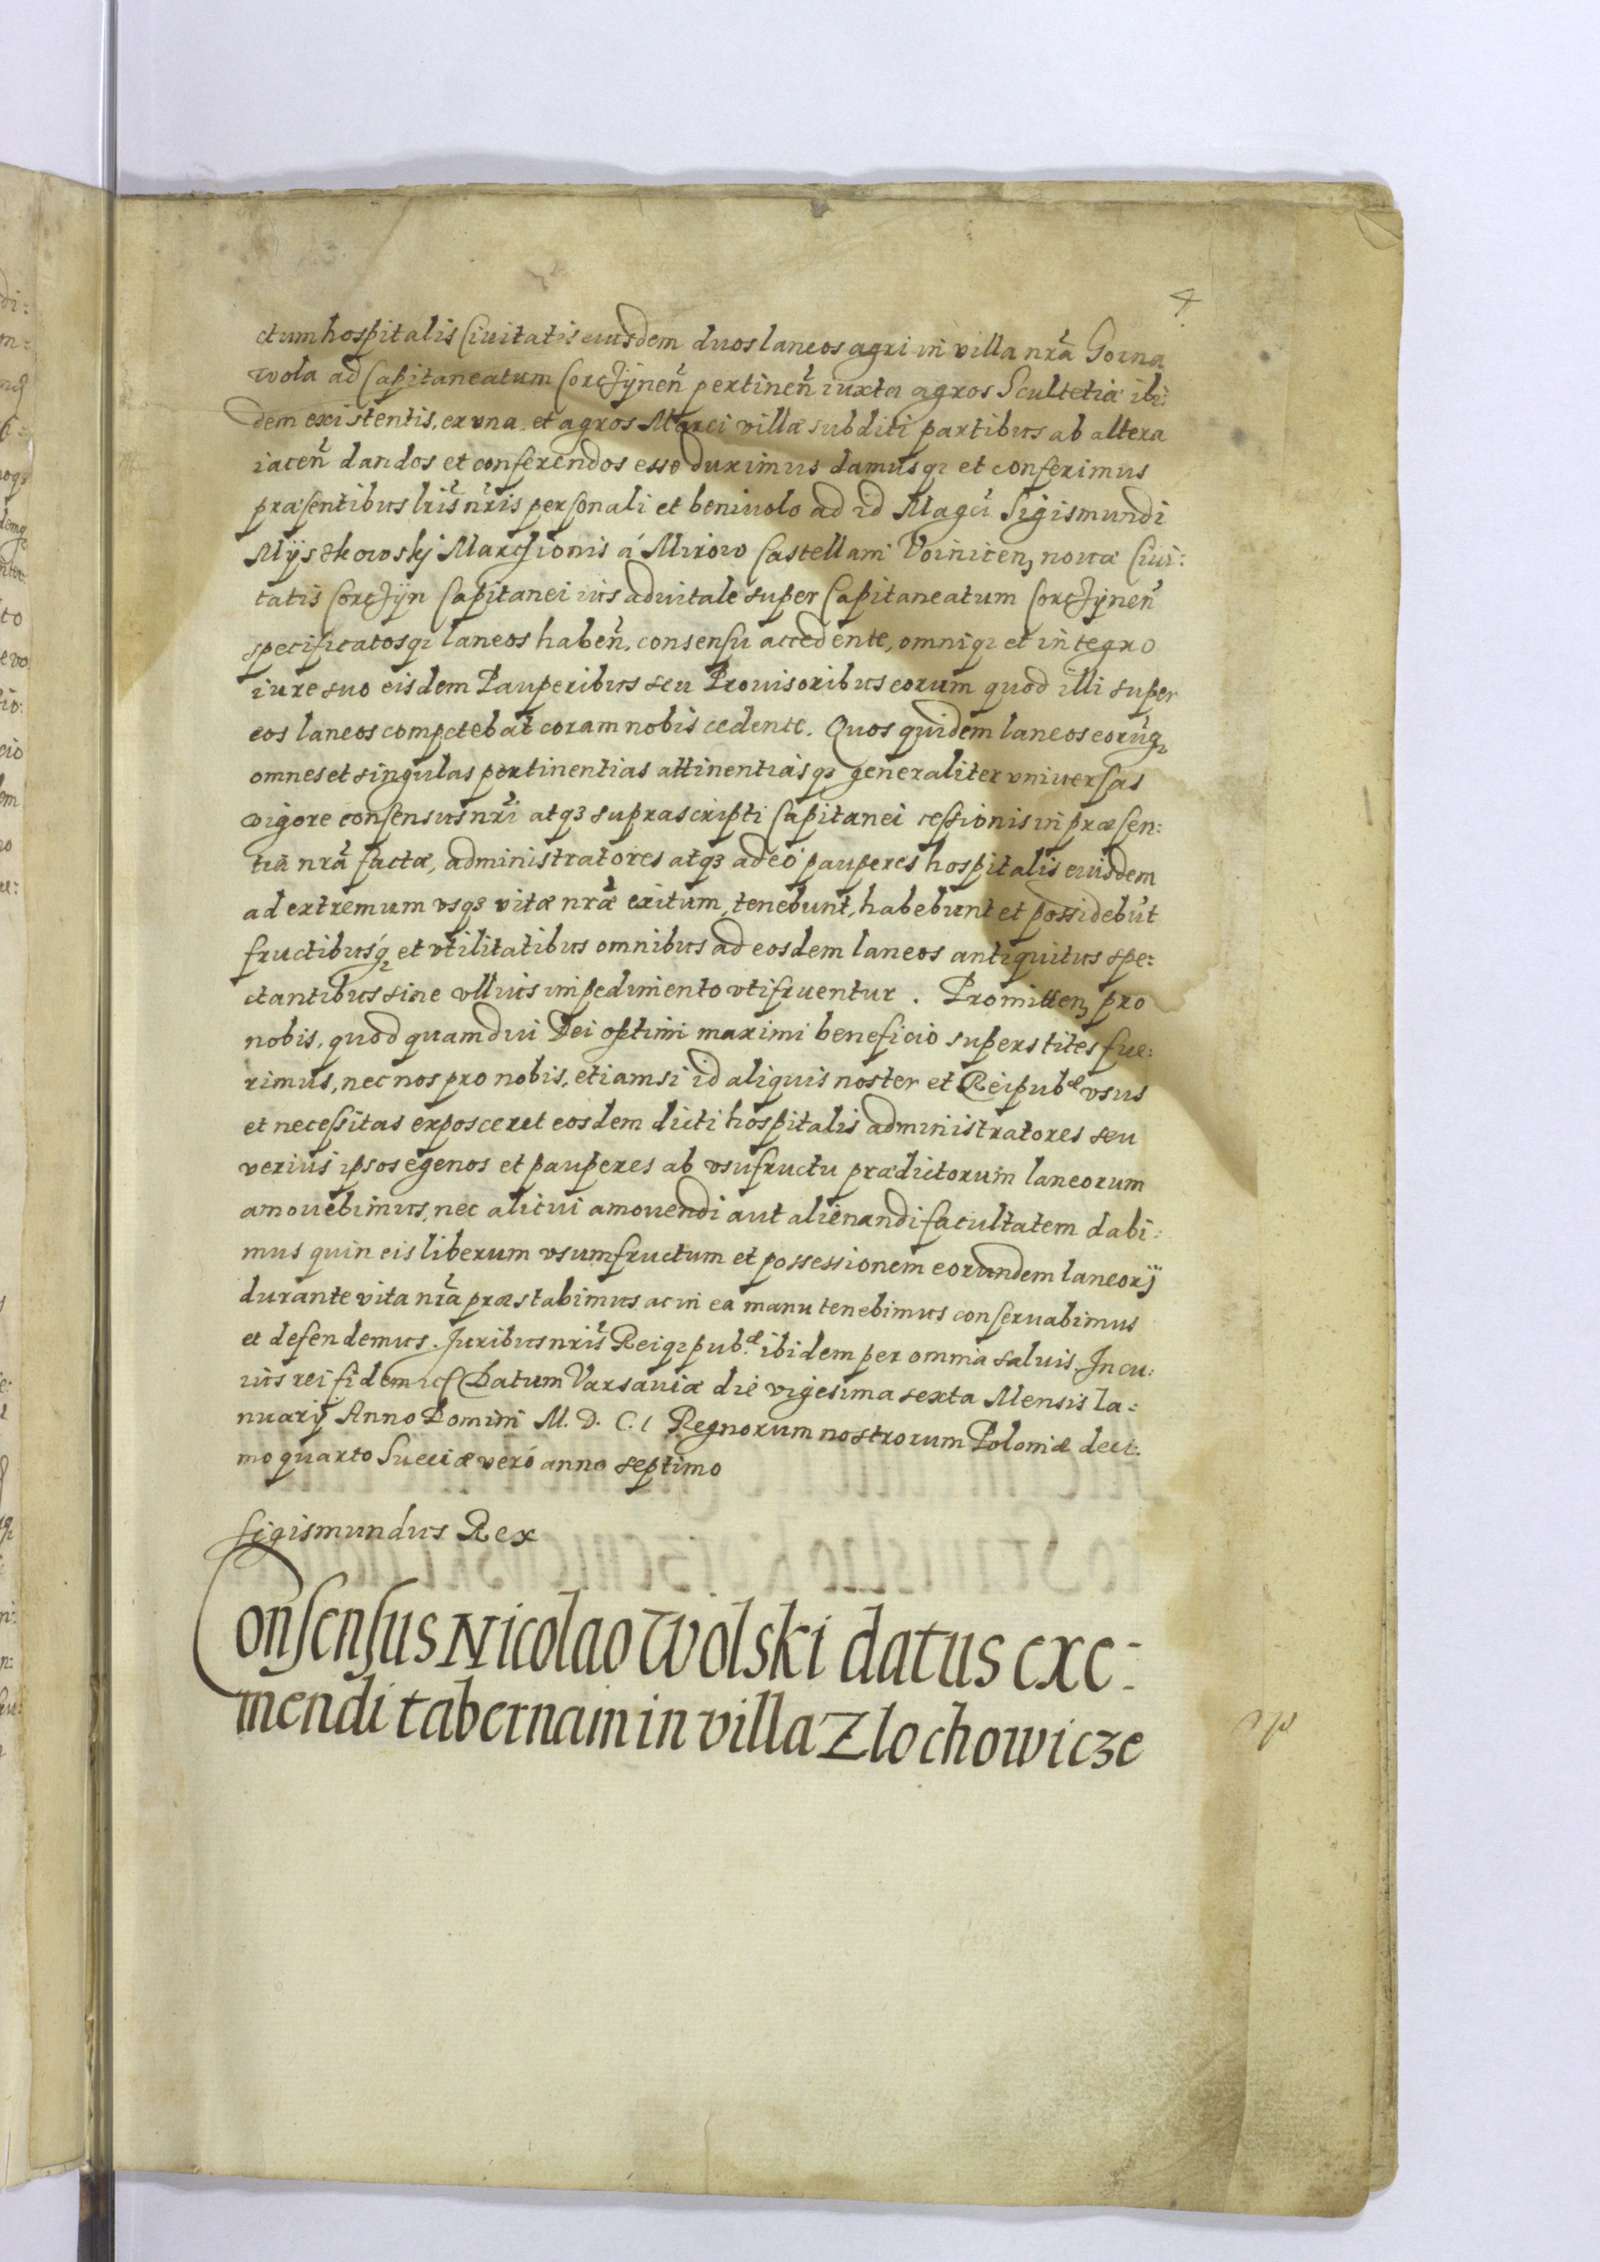 4
ctum hospitalis Ciuitatis eiusdem duos laneos agri in villa nrã Gorna
wola ad Capitaneatum Corczÿneñ pertineñ iuxta agros Scultetiæ ibi:
dem existentis, ex vna, et agros Marci villæ subditi partibus ab altera
iaceñ dandos et conferendos esse duximus damusqȝ et conferimus
præsentibus lris̃ nr̃is personali et beniuolo ad id Magci̇ Sigismundi
Mÿszkowskj Marchionis á Mirow Castellani Voiniceñ, nouæ Ciui:
tatis Corczÿn Capitanei ius aduitale super Capitaneatum Corczÿneñ
specificatosqȝ laneos habeñ, consensu accedente, omniqȝ et integro
iure suo eisdem Pauperibus seu Prouisoribus eorum quod illi super
eos laneos competebat coram nobis cedente. Quos quidem laneos eorũqȝ
omnes et singulas pertinentias attinentiasqȝ generaliter vniuersas
vigore consensus nr̃i atqȝ suprascripti Capitanei cessionis in præsen:
tiã nr̃a factæ, administratores atqȝ adeó pauperes hospitalis eiusdem
ad extremum vsqȝ vitæ nr̃æ exitum, tenebunt, habebunt et possidebũt
fructibusqȝ et vtilitatibus omnibus ad eosdem laneos antiquitus spe:
ctantibus sine vllius impedimento vtifruentur. Promitteñ, pro
nobis, quod quamdiu Dei optimi maximi beneficio superstites fue:
rimus, nec nos pro nobis, etiamsi id aliquis noster et Reipubæ vsus
et necessitas exposceret eosdem dicti hospitalis administratores seu
verius ipsos egenos et pauperes ab vsufructu prædictorum laneorum
amouebimus, nec alicui amouendi aut alienandi facultatem dabi:
mus quin eis liberum vsumfructum et possessionem eorundem laneorũ
durante vita nr̃a præstabimus ac in ea manu tenebimus conseruabimus
et defendemus. Juribus nris̃ Reiqȝ pub.æ ibidem per omnia saluis. In cu:
ius rei fidem Datum Varsauiæ die vigesima sexta Mensis Ia:
nuarÿ Anno Domini M. D. C. I Regnorum nostrorum Poloniæ deci:
mo quarto Sueciæ veró anno septimo
Sigismundus Rex
Consensus Nicolao Wolski datus exe:
mendi tabernam in villa Zlochowicze